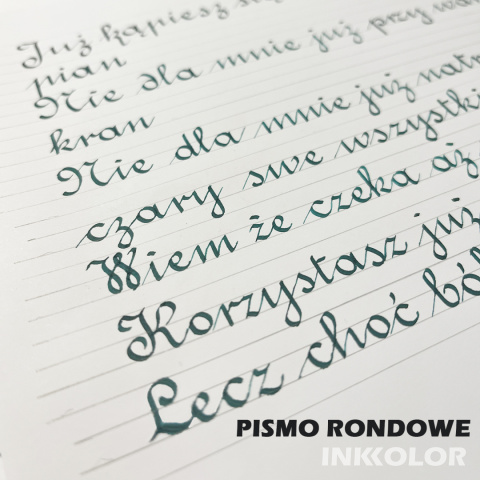 Już kąpiesz się
pian
Nie dla mnie już przy
kran
Nie dla mnie już
czary swe wszystki
Wiem że czeka aż
Korzystasz już
Lecz choć ból
PISMO RONDOWE
INKKOLOR